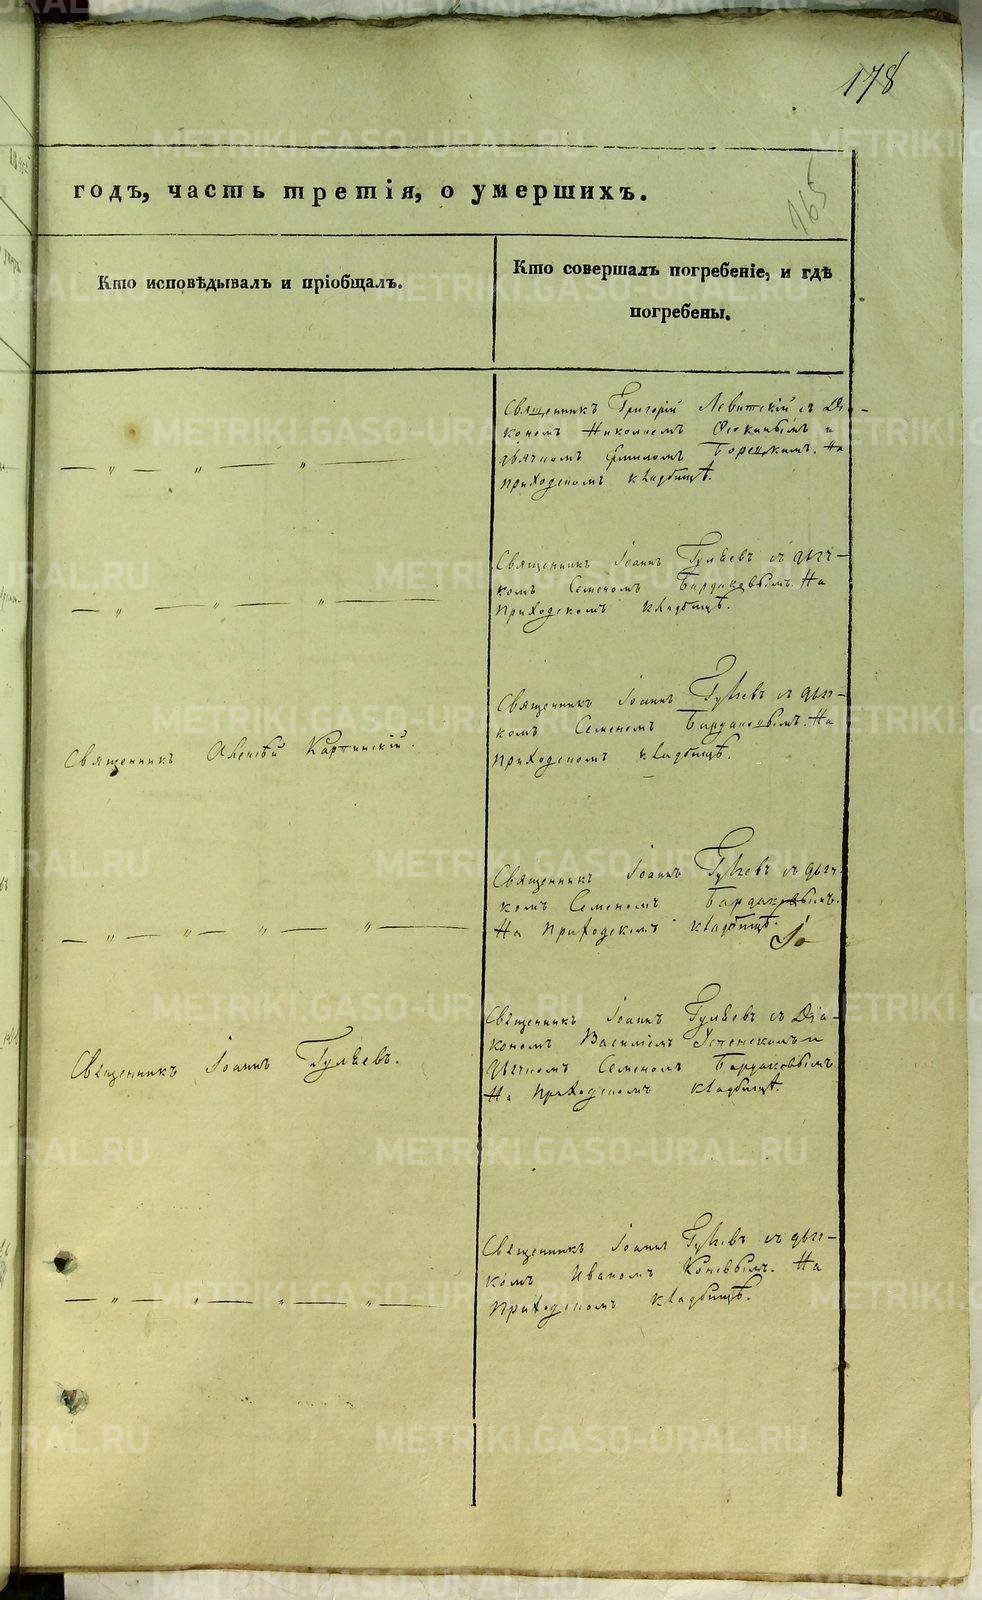 178
165
годъ, часть третія, о умершихъ.
Кто исповѣдывалъ и пріобщалъ.
Кто совершалъ погребеніе, и гдѣ
погребены.
Священникъ Григорій Левитскій съ Діа-
кономъ Николаемъ и
дьячкомъ Борецкимъ. На
приходскомъ кладбищѣ.
— „ — „ — „ —
Священникъ Іоаннъ Гуляевъ съ дьяч-
комъ Семеномъ Бардаковымъ. На
Приходскомъ кладбищѣ.
— „ — „ — „ —
Священникъ Іоаннъ Гуляевъ съ дьяч-
комъ Семеномъ Бардаковымъ. На
Приходскомъ кладбищѣ.
Священникъ Алексѣй Картинскій.
Священникъ Іоаннъ Гуляевъ съ дьяч-
комъ Семеномъ Бардаковымъ.
На Приходскомъ кладбищѣ.
— „ — „ — „ — „ —
Священникъ Іоаннъ Гуляевъ съ Діа-
кономъ Василіемъ Успенскимъ и
Дьячкомъ Семеномъ Бардаковымъ
На Приходскомъ кладбищѣ.
Священникъ Іоаннъ Гуляевъ.
Священникъ Іоаннъ Гуляевъ съ дьяч-
комъ Иваномъ Коневымъ. На
Приходскомъ кладбищѣ.
— „ — „ — „ — „ —
METRIKI.GASO-URAL.RU